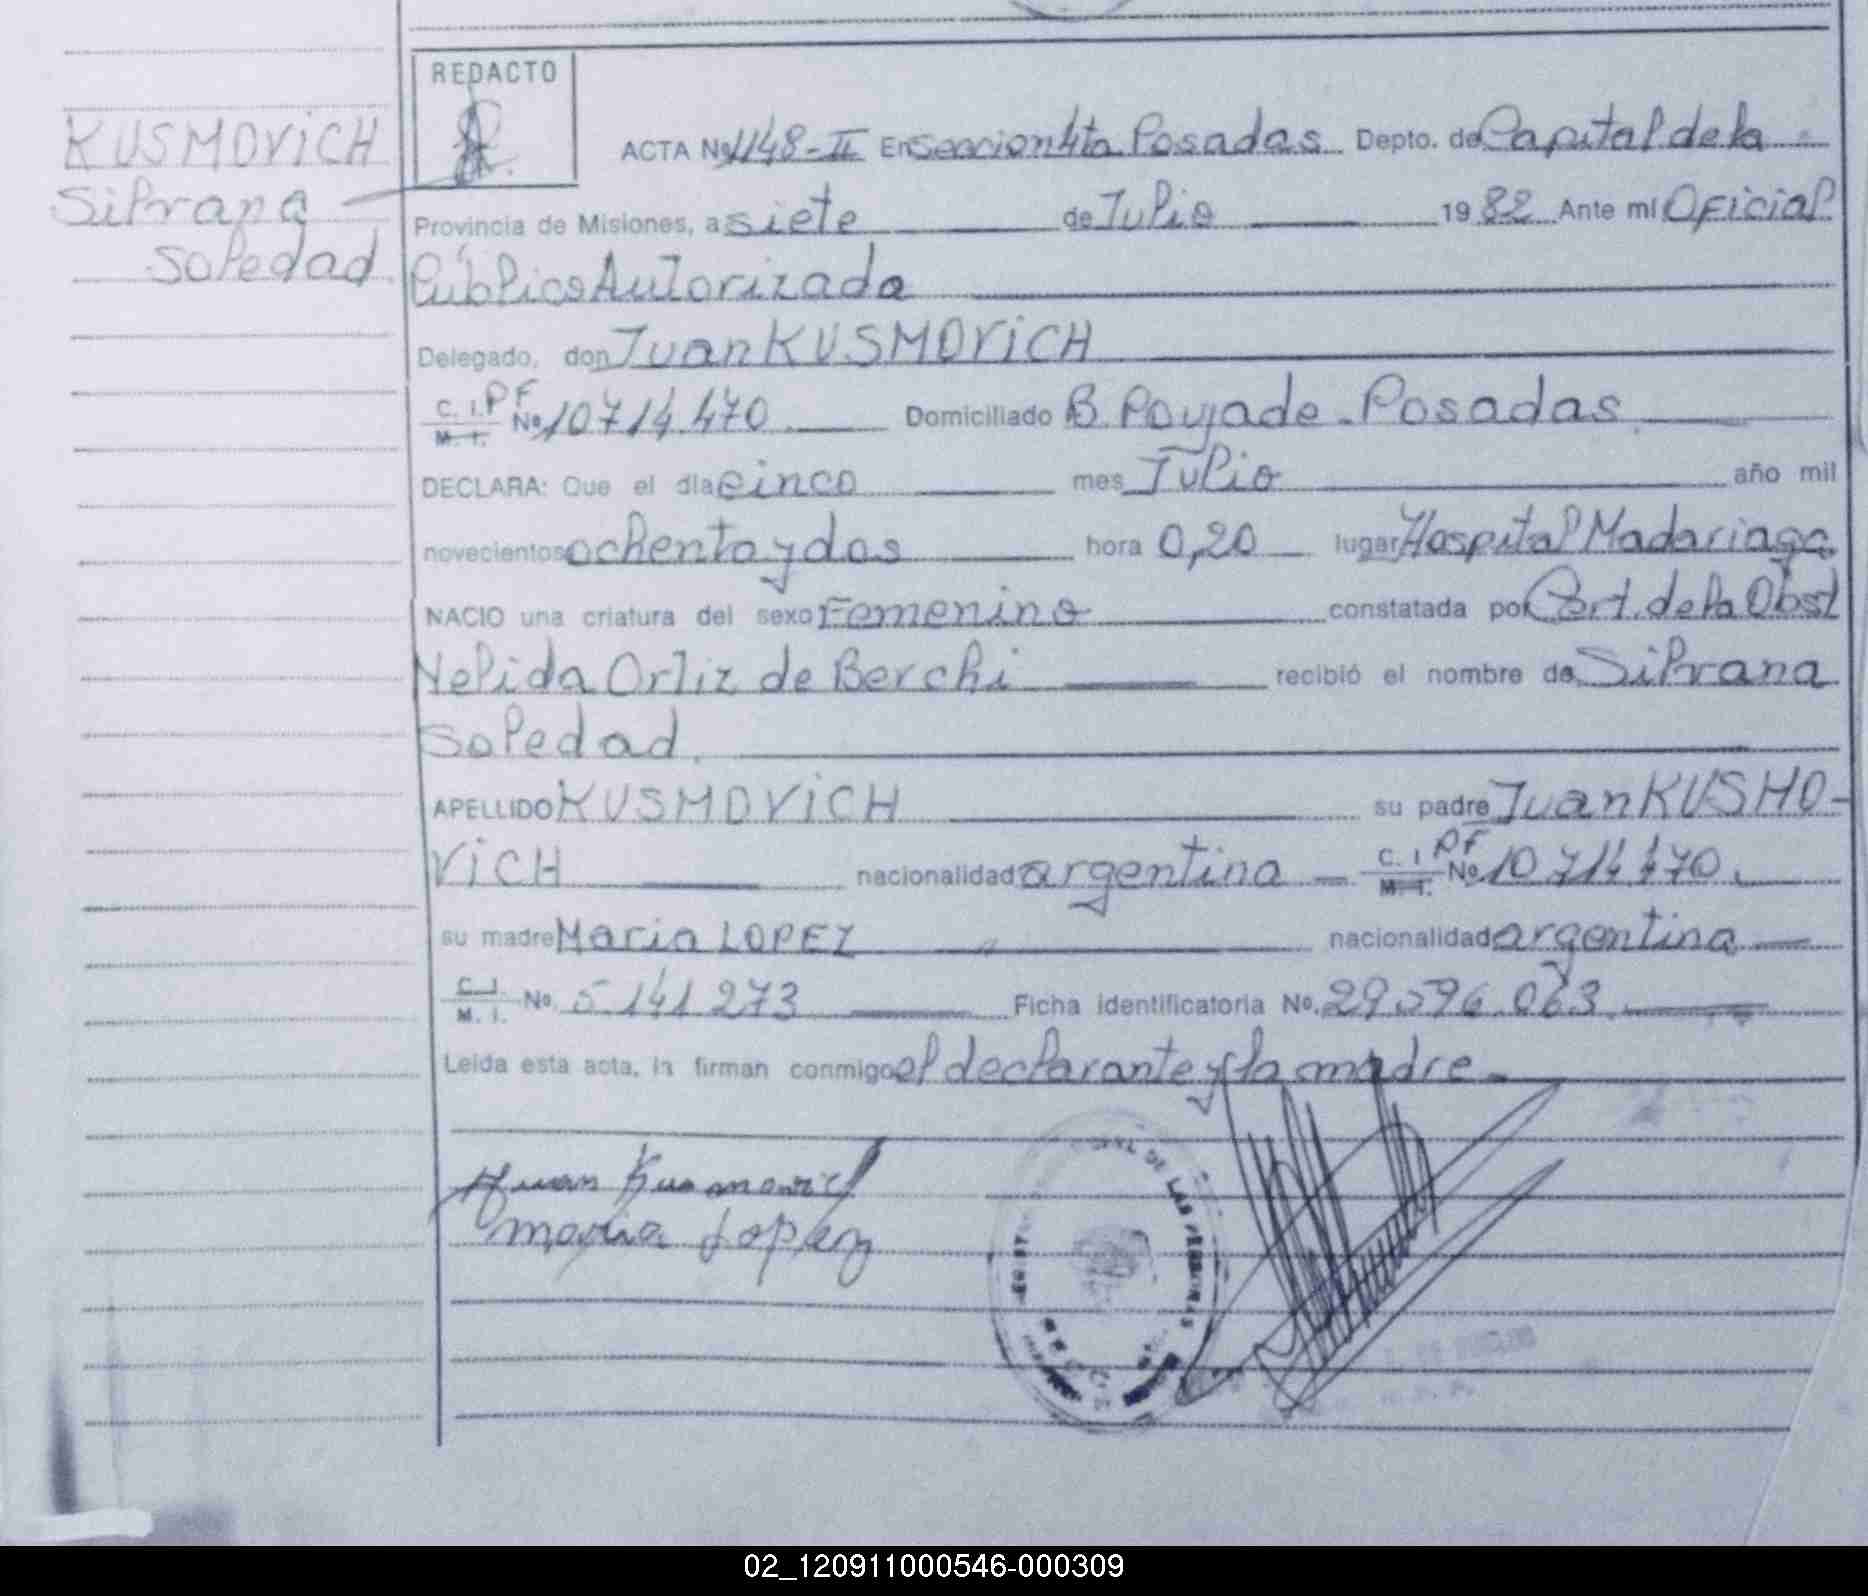 REDACTO
KUSMOVICH
Silvana
Soledad
ACTA Nº 1148-II En Seccion 4ta Posadas Depto. de Capital de la
Provincia de Misiones, a siete de Julio 1982 Ante mí Oficial
Público Autorizada
Delegado, don Juan KUSMOVICH
C. I. PF
M. I. Nº 10714.470 Domiciliado B. Poujade - Posadas
DECLARA: Que el día cinco mes Julio año mil
novecientos ochenta y dos hora 0,20 lugar Hospital Madariaga
NACIO una criatura del sexo Femenino constatada por Cert. de la Obst
Nelida Ortiz de Berchi recibió el nombre de Silvana
Soledad.
APELLIDO KUSMOVICH su padre Juan KUSMO-
VICH nacionalidad argentina C. I. PF M. I. Nº 10714470.
su madre Maria LOPEZ nacionalidad argentina
C. I.
M. I. Nº. 5.141.273 Ficha identificatoria Nº. 29.596.063.
Leída esta acta, la firman conmigo el declarante y la madre.
Juan Kusmovich
maria Lopez
DE LAS PERSONAS
02_120911000546-000309